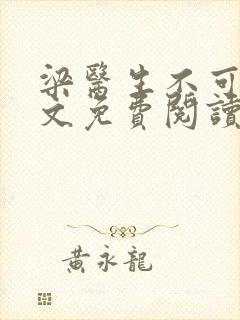 梁醫生不可
文免費閱讀
黃永龍